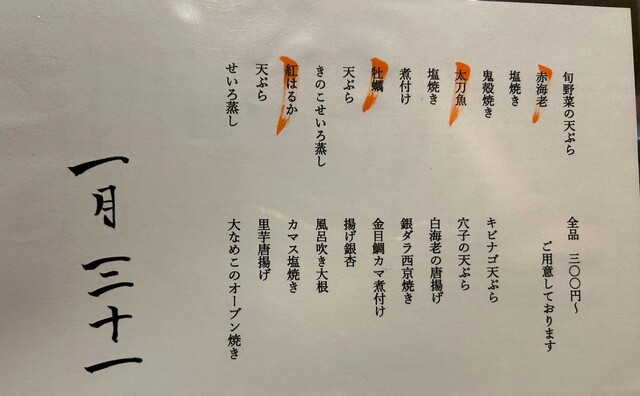 旬野菜の天ぷら
赤海老
塩焼き
鬼殻焼き
太刀魚
塩焼き
煮付け
牡蠣
天ぷら
きのこせいろ蒸し
紅はるか
天ぷら
せいろ蒸し
全品 三〇〇円～
ご用意しております
キビナゴ天ぷら
穴子の天ぷら
白海老の唐揚げ
銀ダラ西京焼き
金目鯛カマ煮付け
揚げ銀杏
風呂吹き大根
カマス塩焼き
里芋唐揚げ
大なめこのオーブン焼き
一月三十一